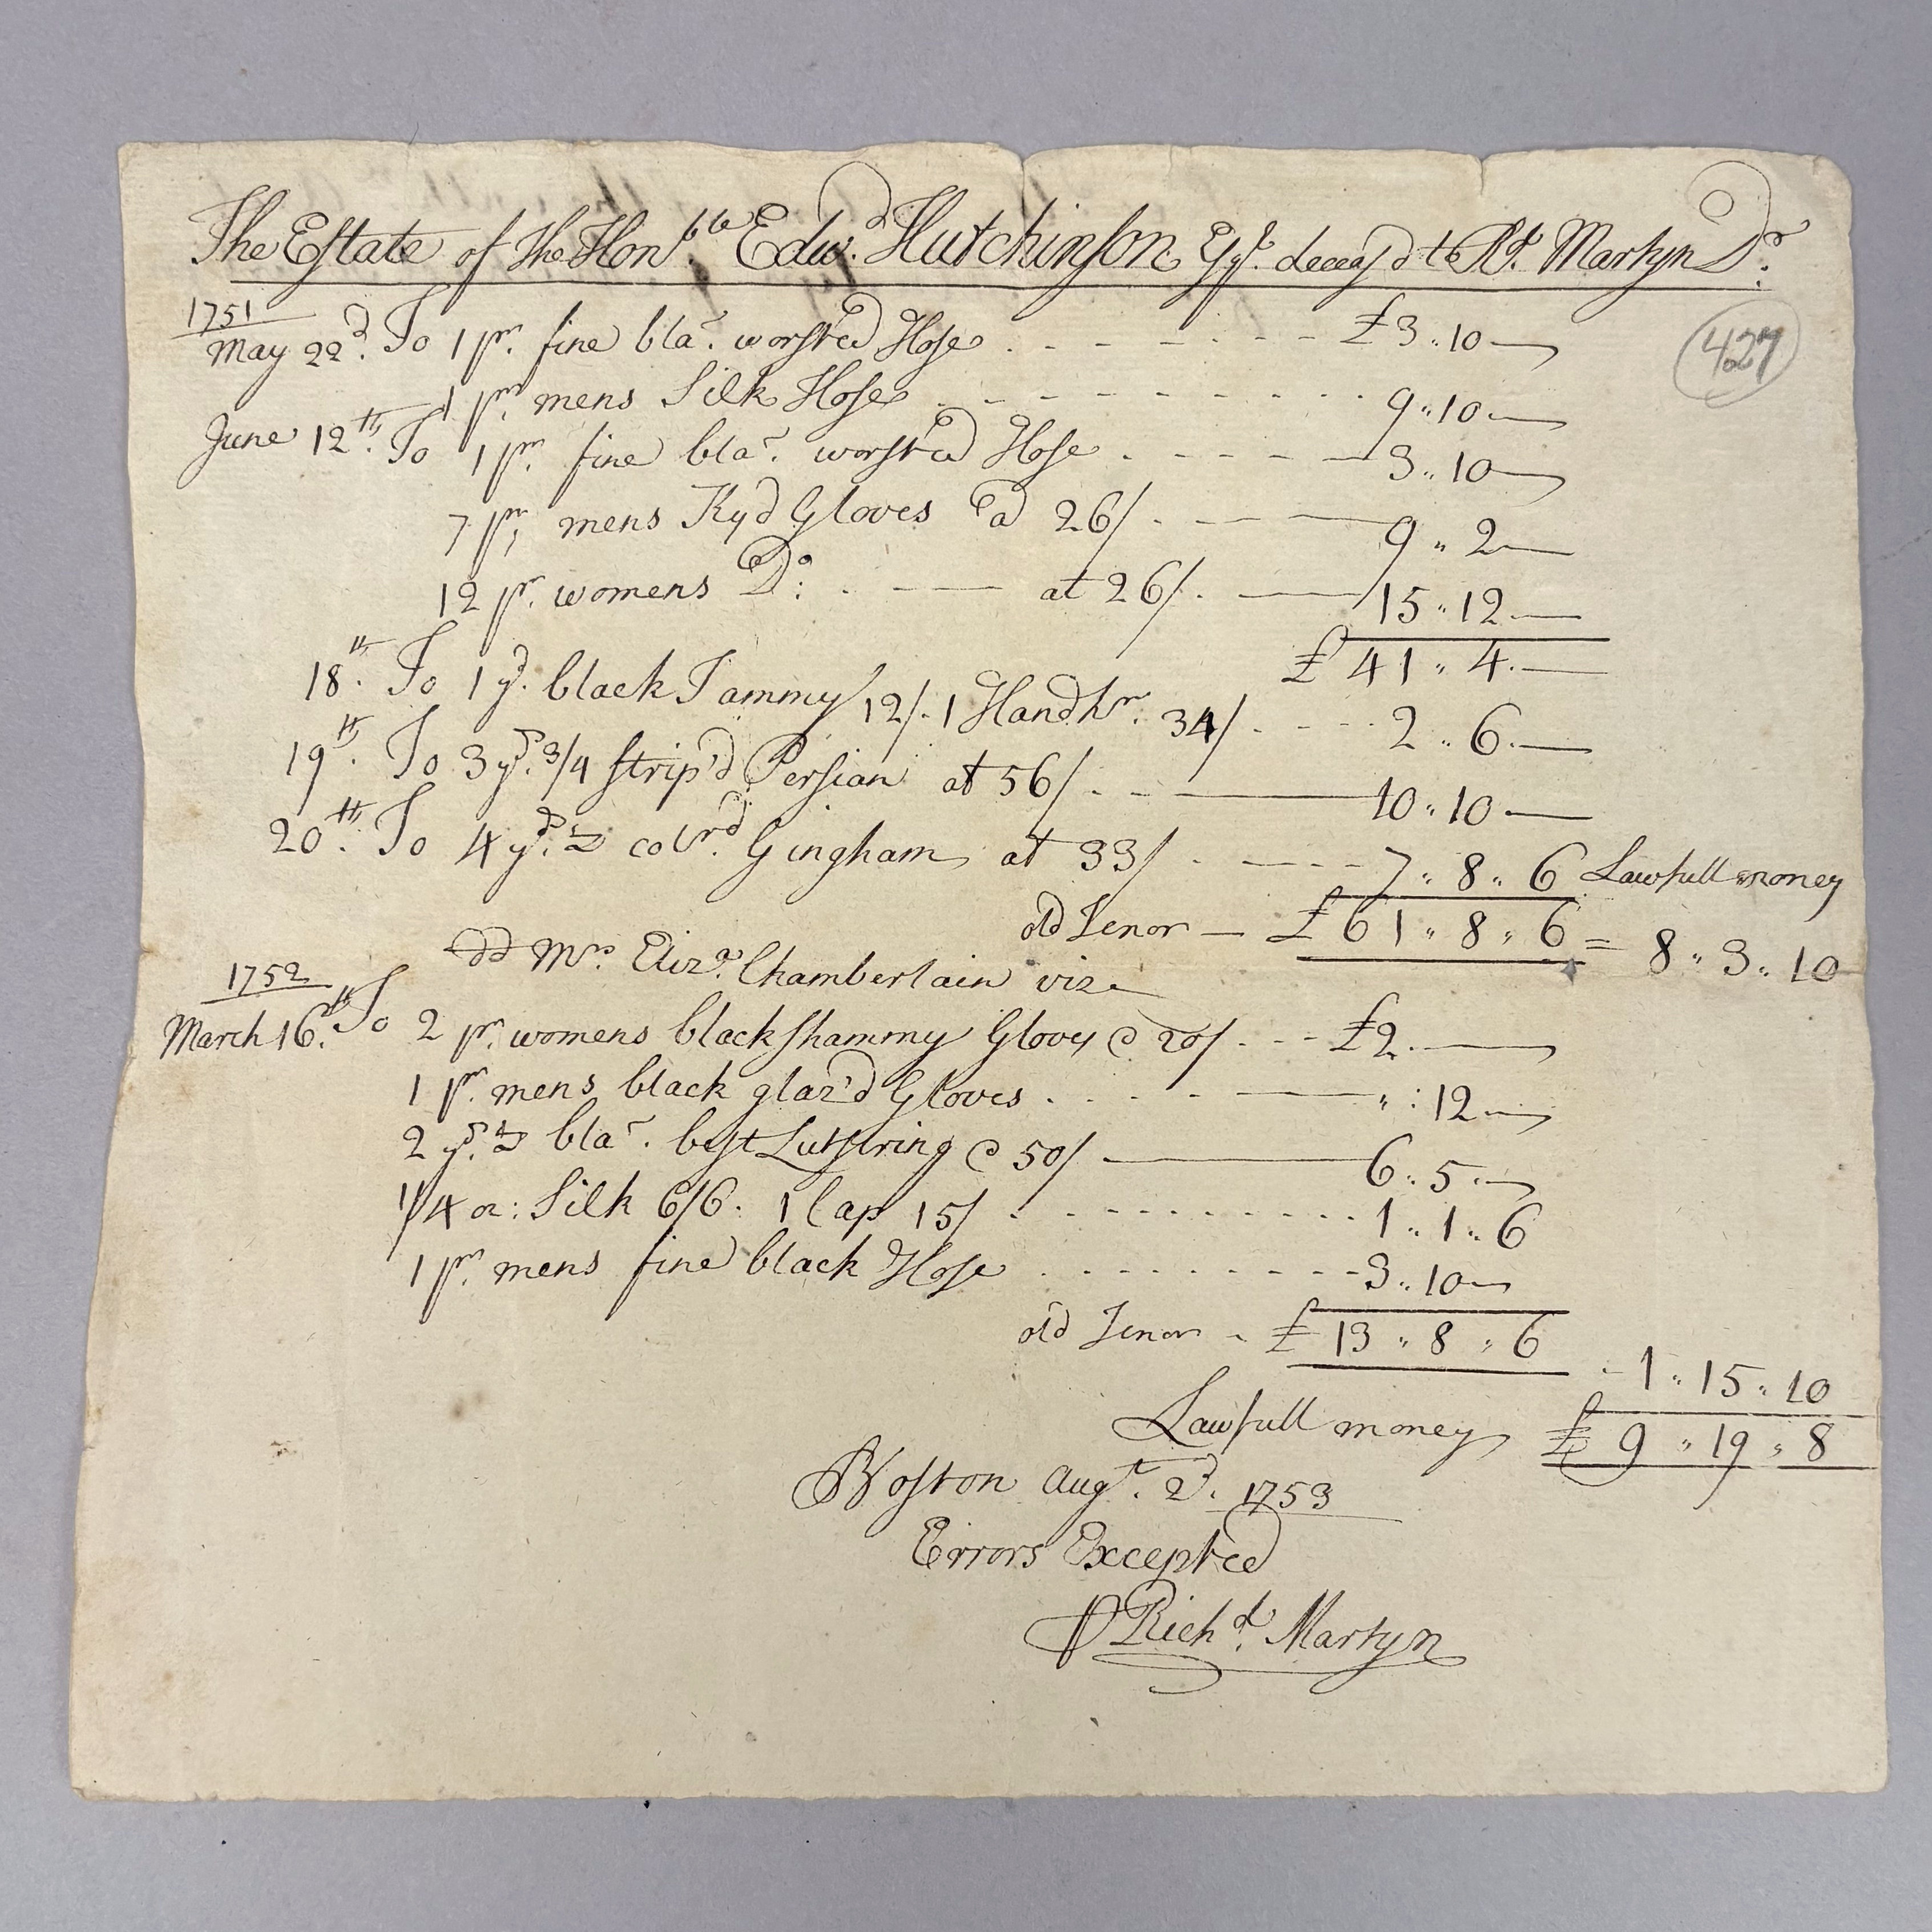 The Estate of the Honble Edwd Hutchinson Esqr deceas'd to Rd Martyn Dr
1751
427
May 22d To 1 pr fine blac worsted Hose £3 " 10 —
1 pr mens Silk Hose 9 " 10 —
June 12th To 1 pr fine blac worsted Hose 3 " 10 —
7 pr mens Kyd Gloves a 26/ 9 " 2 —
12 pr womens Do: at 26/ 15 " 12 —
£ 41 " 4 —
18th To 1 yd black Tammy 12/. 1 Handkr 34/ 2 " 6 —
19th To 3 yds 3/4 strip'd Persian at 56/ 10 " 10 —
20th To 4 yds ½ colrd Gingham at 33/ 7 " 8 " 6 Lawfull money
old Tenor — £ 61 " 8 " 6 = 8 " 3 " 10
dd Mrs Eliza Chamberlain viz
1752
March 16th To 2 pr womens black shammy Gloves @ 20/ £2 —
1 pr mens black glaz'd Gloves " : 12 —
2 yds ½ blac best Lutstring @ 50/ 6 " 5 —
1/4 oz: Silk 6/6. 1 Cap 15/ 1 " 1 " 6
1 pr mens fine black Hose 3 " 10 —
old Tenor - £ 13 " 8 " 6
1 " 15 " 10
Lawfull money £ 9 " 19 " 8
Boston Augt 2d 1753
Errors Excepted
P Richd Martyn